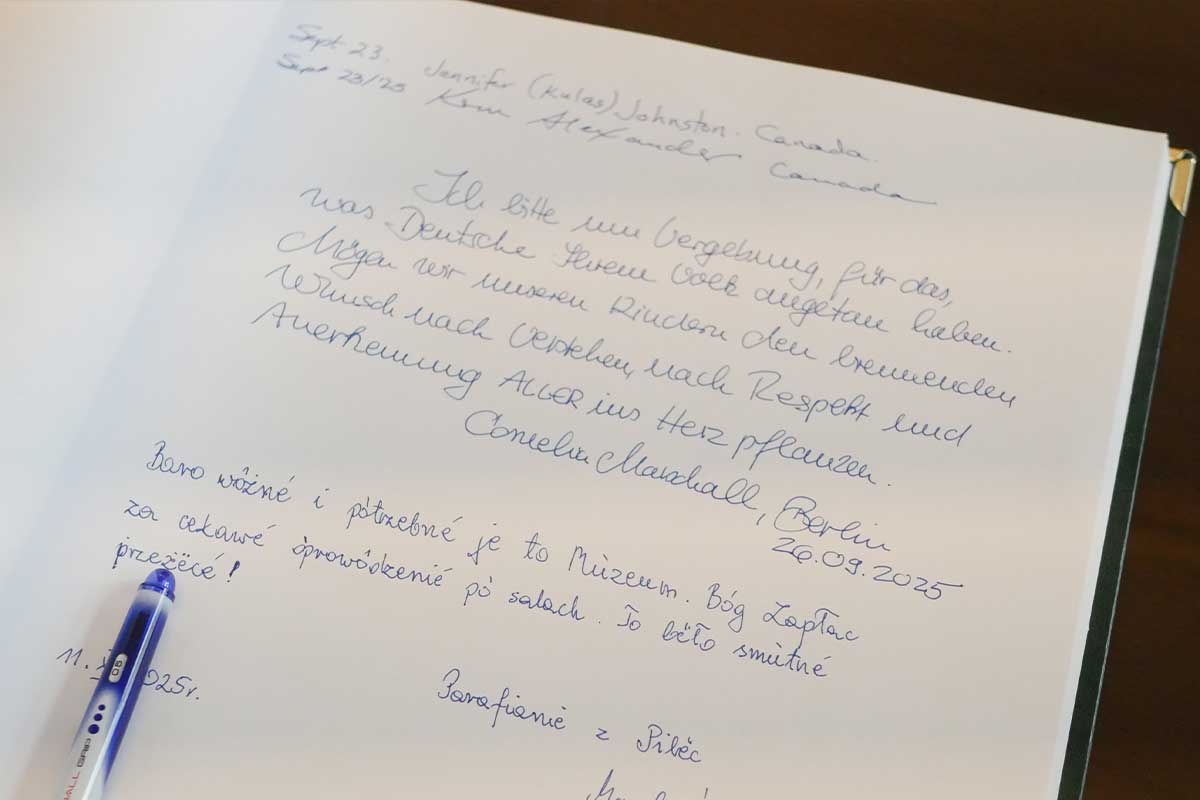 Sept 23. Jennifer (Kulas) Johnston. Canada.
Sept 23/25 Kim Alexander Canada
Ich bitte um Vergebung, für das,
was Deutsche Ihrem Volk angetan haben.
Mögen wir unseren Kindern den brennenden
Wunsch nach Verstehen, nach Respekt und
Anerkennung ALLER ins Herz pflanzen.
Cornelia Marschall, Berlin
26.09.2025
Baro wôżné i pòtrzebné je to Mùzeum. Bóg Zapłac
za cekawé òprowôdzenié pò salach. To bëło smùtné
przeżëcé!
11. 2025r.
Parafianié z Pibëc
05
BALL GRIP